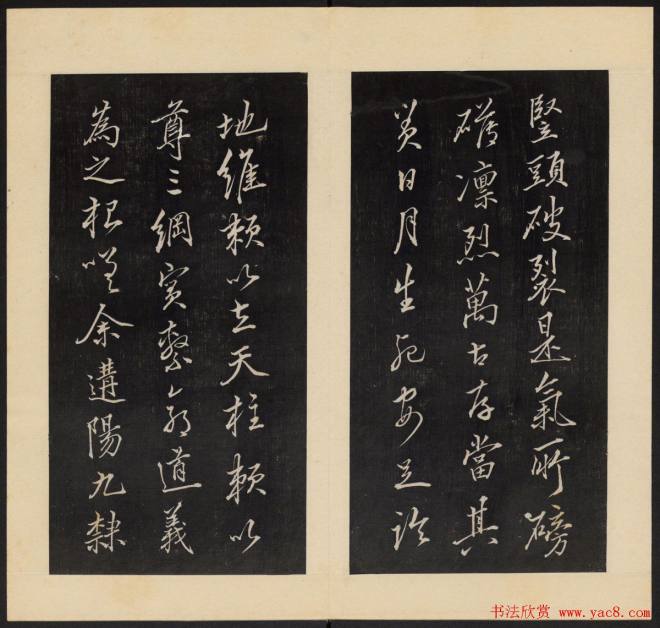 豎頭破裂是氣所磅
礴凛烈萬古存當其
貫日月生死安足論
地維賴以立天柱賴以
尊三綱實繫命道義
為之根嗟余遘陽九隸
书法欣赏 www.yac8.com